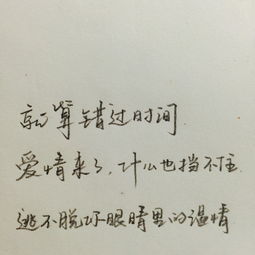 就算错过时间
爱情来了，什么也挡不住
逃不脱你眼睛里的温情